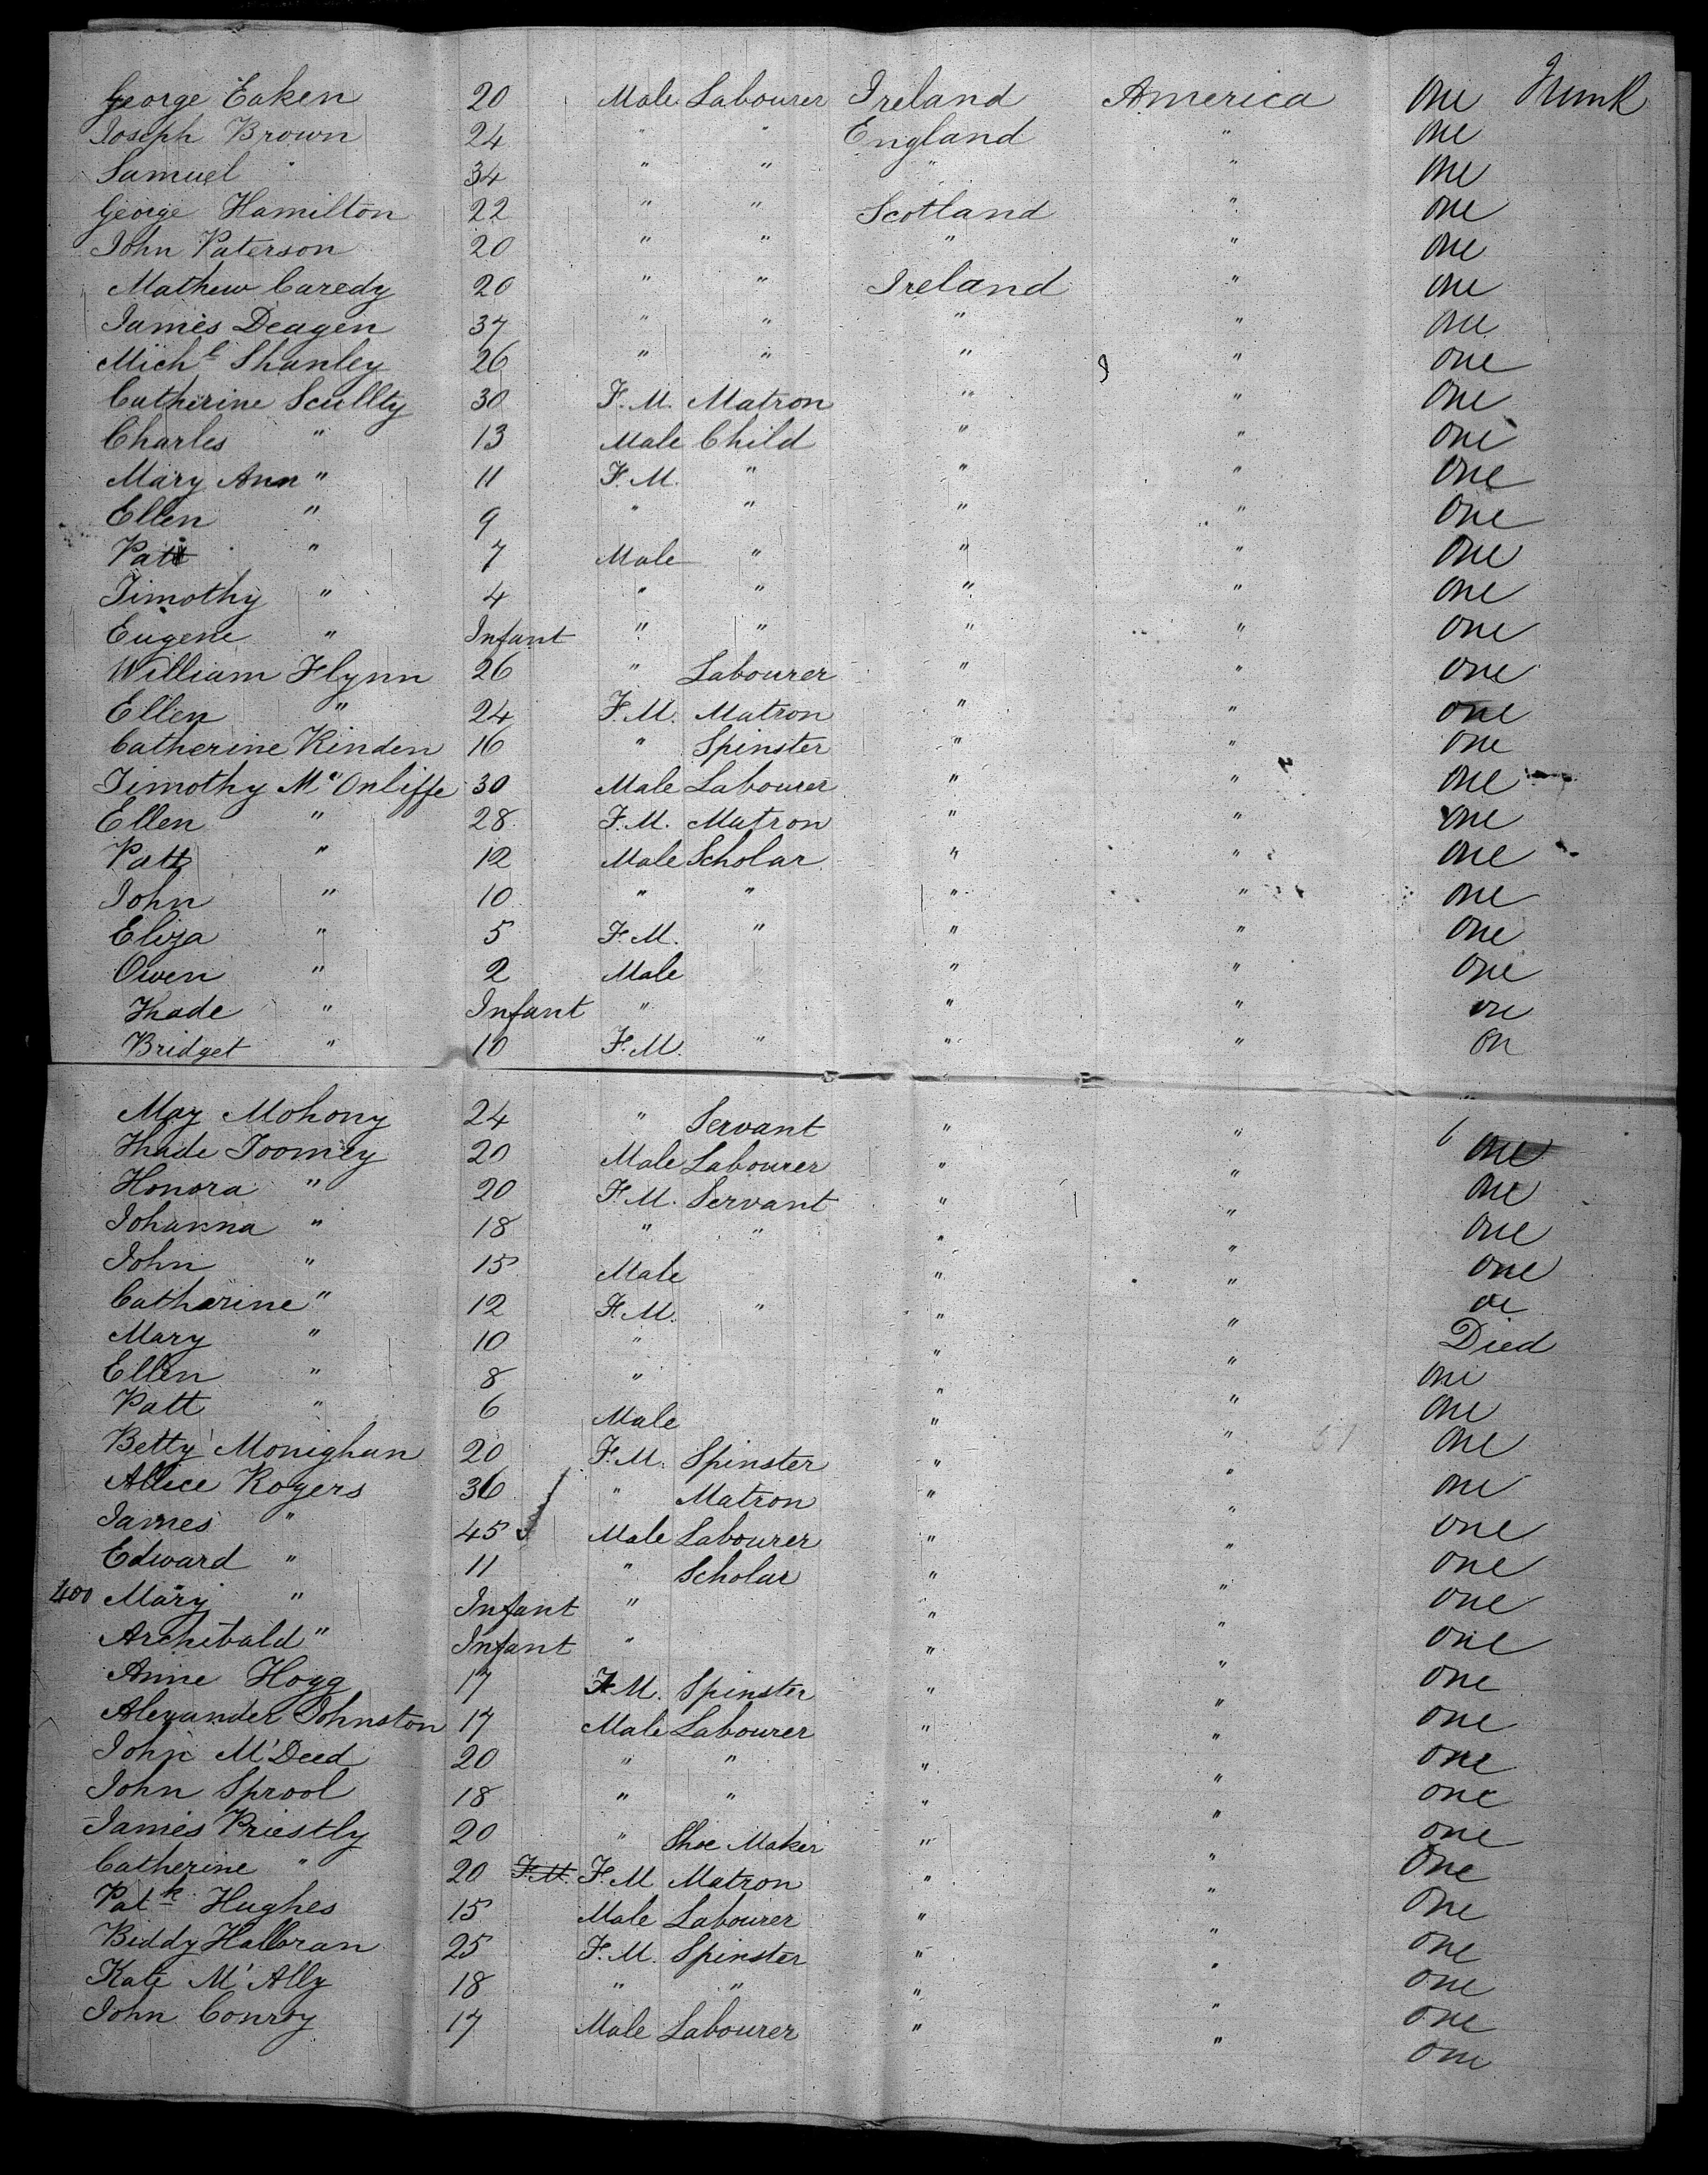 George Eaken 20 Male Labourer Ireland America one Trunk
Joseph Brown 24 " " England " one
Samuel " 34 " " " " one
George Hamilton 22 " " Scotland " one
John Paterson 20 " " " " one
Mathew Caredy 20 " " Ireland " one
James Deagen 37 " " " " one
Michl Shanley 26 " " " " one
Catherine Scullty 30 F.M. Matron " " one
Charles " 13 Male Child " " one
Mary Ann " 11 F.M. " " " one
Ellen " 9 " " " " one
Patt " 7 Male " " " one
Timothy " 4 " " " " one
Eugene " Infant " " " " one
William Flynn 26 " Labourer " " one
Ellen " 24 F.M. Matron " " one
Catherine Kinden 16 " Spinster " " one
Timothy Mc Onliffe 30 Male Labourer " " one
Ellen " 28 F.M. Matron " " one
Patt " 12 Male Scholar " " one
John " 10 " " " " one
Eliza " 5 F.M. " " " one
Owen " 2 Male " " " one
Thade " Infant " " " one
Bridget " 10 F.M. " " " on
May Mohony 24 " Servant " " "
Thade Toomey 20 Male Labourer " " one
Honora " 20 F.M. Servant " " one
Johanna " 18 " " " " one
John " 15 Male " " one
Catherine " 12 F.M. " " " oe
Mary " 10 " " " Died
Ellen " 8 " " " one
Patt " 6 Male " " one
Betty Monighan 20 F.M. Spinster " " one
Allice Rogers 36 " Matron " " one
James " 45 Male Labourer " " one
Edward " 11 " Scholar " " one
400 Mary " Infant " " " one
Archibald " Infant " " " one
Anne Hogg 17 F.M. Spinster " " one
Alexander Johnston 17 Male Labourer " " one
John M'Deed 20 " " " " one
John Sprool 18 " " " " one
James Priestly 20 " Shoe Maker " " one
Catherine " 20 F.M. F.M Matron " " one
Patk Hughes 15 Male Labourer " " one
Biddy Halloran 25 F.M. Spinster " " one
Kate M'Ally 18 " " " " one
John Conroy 17 Male Labourer " " one
one